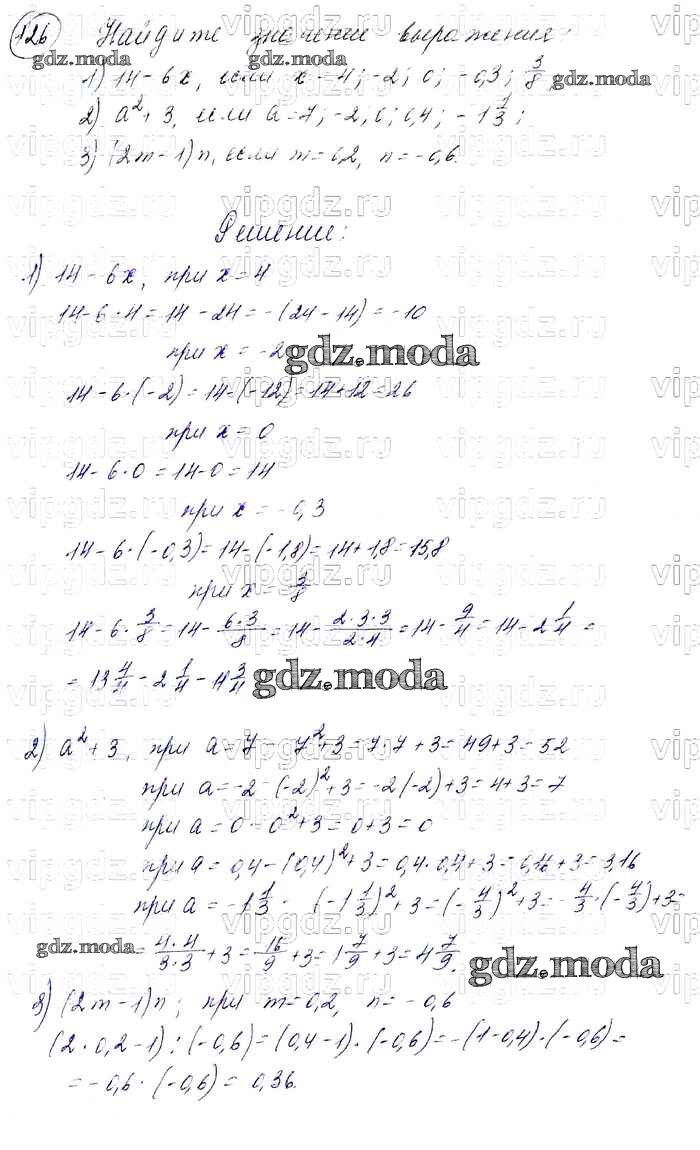 126 Найдите значение выражения:
1) 14 - 6x, если x - 4; -2; 0; -0,3; 3/8
2) a² + 3, если a = 7; -2; 0; 0,4; -1 1/3;
3) (2m - 1)n, если m = 0,2, n = -0,6.
Решение:
1) 14 - 6x, при x = 4
14 - 6 · 4 = 14 - 24 = -(24 - 14) = -10
при x = -2
14 - 6 · (-2) = 14 - (-12) = 14 + 12 = 26
при x = 0
14 - 6 · 0 = 14 - 0 = 14
при x = -0,3
14 - 6 · (-0,3) = 14 - (-1,8) = 14 + 1,8 = 15,8
при x = 3/8
14 - 6 · 3/8 = 14 - 6·3/8 = 14 - 2·3·3/2·4 = 14 - 9/4 = 14 - 2 1/4 =
= 13 4/4 - 2 1/4 - 11 3/4
2) a² + 3, при a = 7 - 7² + 3 = 7 · 7 + 3 = 49 + 3 = 52
при a = -2 - (-2)² + 3 = -2(-2) + 3 = 4 + 3 = 7
при a = 0 - 0² + 3 = 0 + 3 = 0
при a = 0,4 - (0,4)² + 3 = 0,4 · 0,4 + 3 = 0,16 + 3 = 3,16
при a = -1 1/3 - (-1 1/3)² + 3 = (-4/3)² + 3 = -4/3 · (-4/3) + 3 =
= 4·4/3·3 + 3 = 16/9 + 3 = 1 7/9 + 3 = 4 7/9.
3) (2m - 1)n; при m = 0,2, n = -0,6
(2 · 0,2 - 1) : (-0,6) = (0,4 - 1) · (-0,6) = -(1 - 0,4) · (-0,6) =
= -0,6 · (-0,6) = 0,36.
gdz.moda
vipgdz.ru